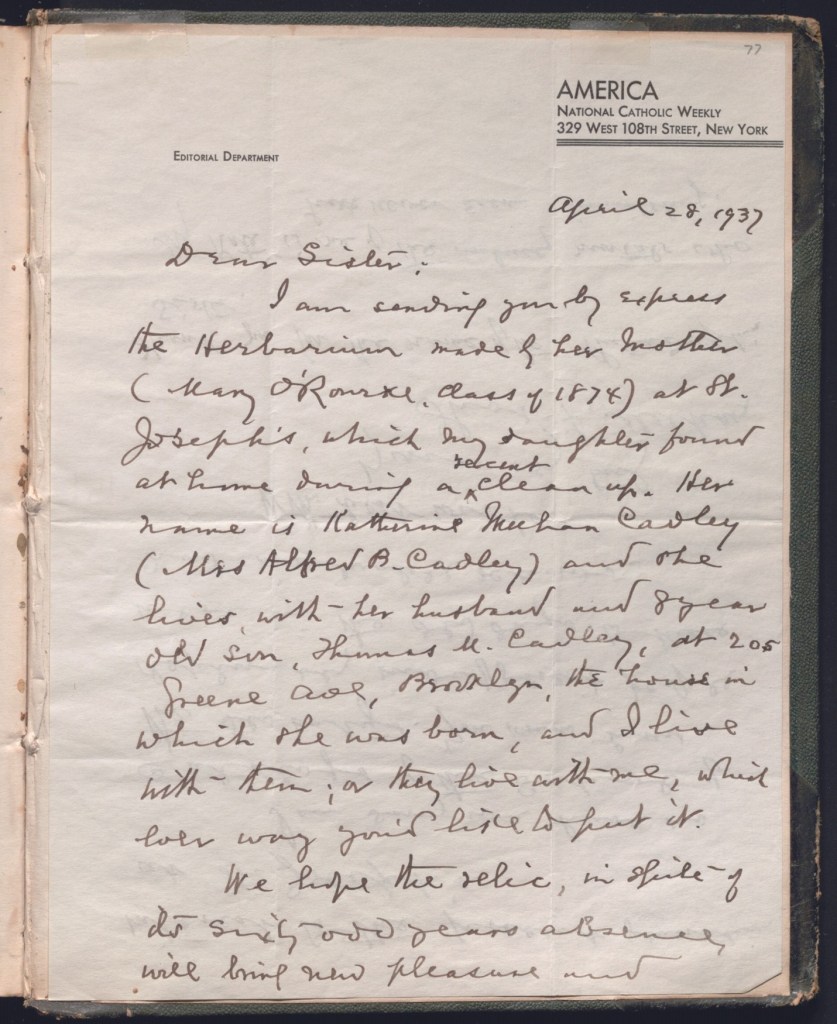 77
AMERICA
NATIONAL CATHOLIC WEEKLY
329 WEST 108TH STREET, NEW YORK
EDITORIAL DEPARTMENT
April 28, 1937
Dear Sister:
I am sending you by express
the Herbarium made by her Mother
(Mary O'Rourke, class of 1874) at St.
Joseph's, which my daughter found
at home during a recent clean up. Her
name is Katherine Meehan Cadley
(Mrs Alfred B. Cadley) and she
lives, with her husband and 8 year
old son, Thomas M. Cadley, at 205
Greene Ave, Brooklyn, the house in
which she was born, and I live
with them; or they live with me, which
ever way you'd like to put it.
We hope the relic, in spite of
its sixty odd years absence,
will bring new pleasure and